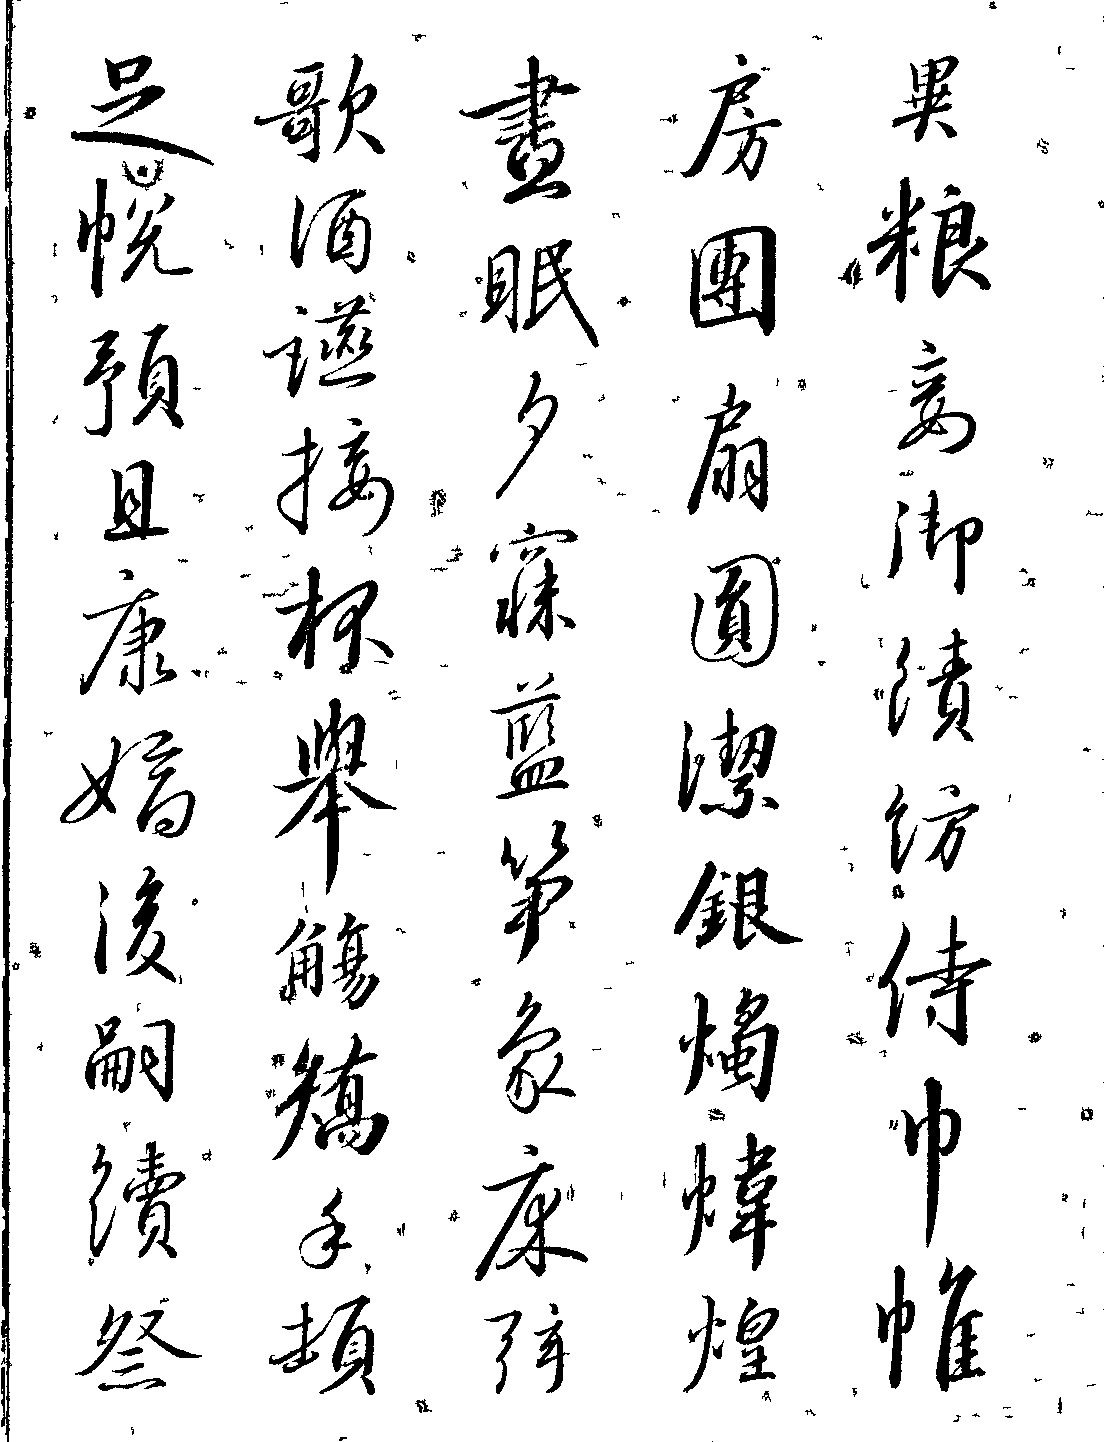 異粮妾御績紡侍巾帷
房團扇圓潔銀燭煒煌
晝眠夕寐藍笋象床弦
歌酒讌接杯舉觴矯手頓
足悅預且康嫡後嗣續祭